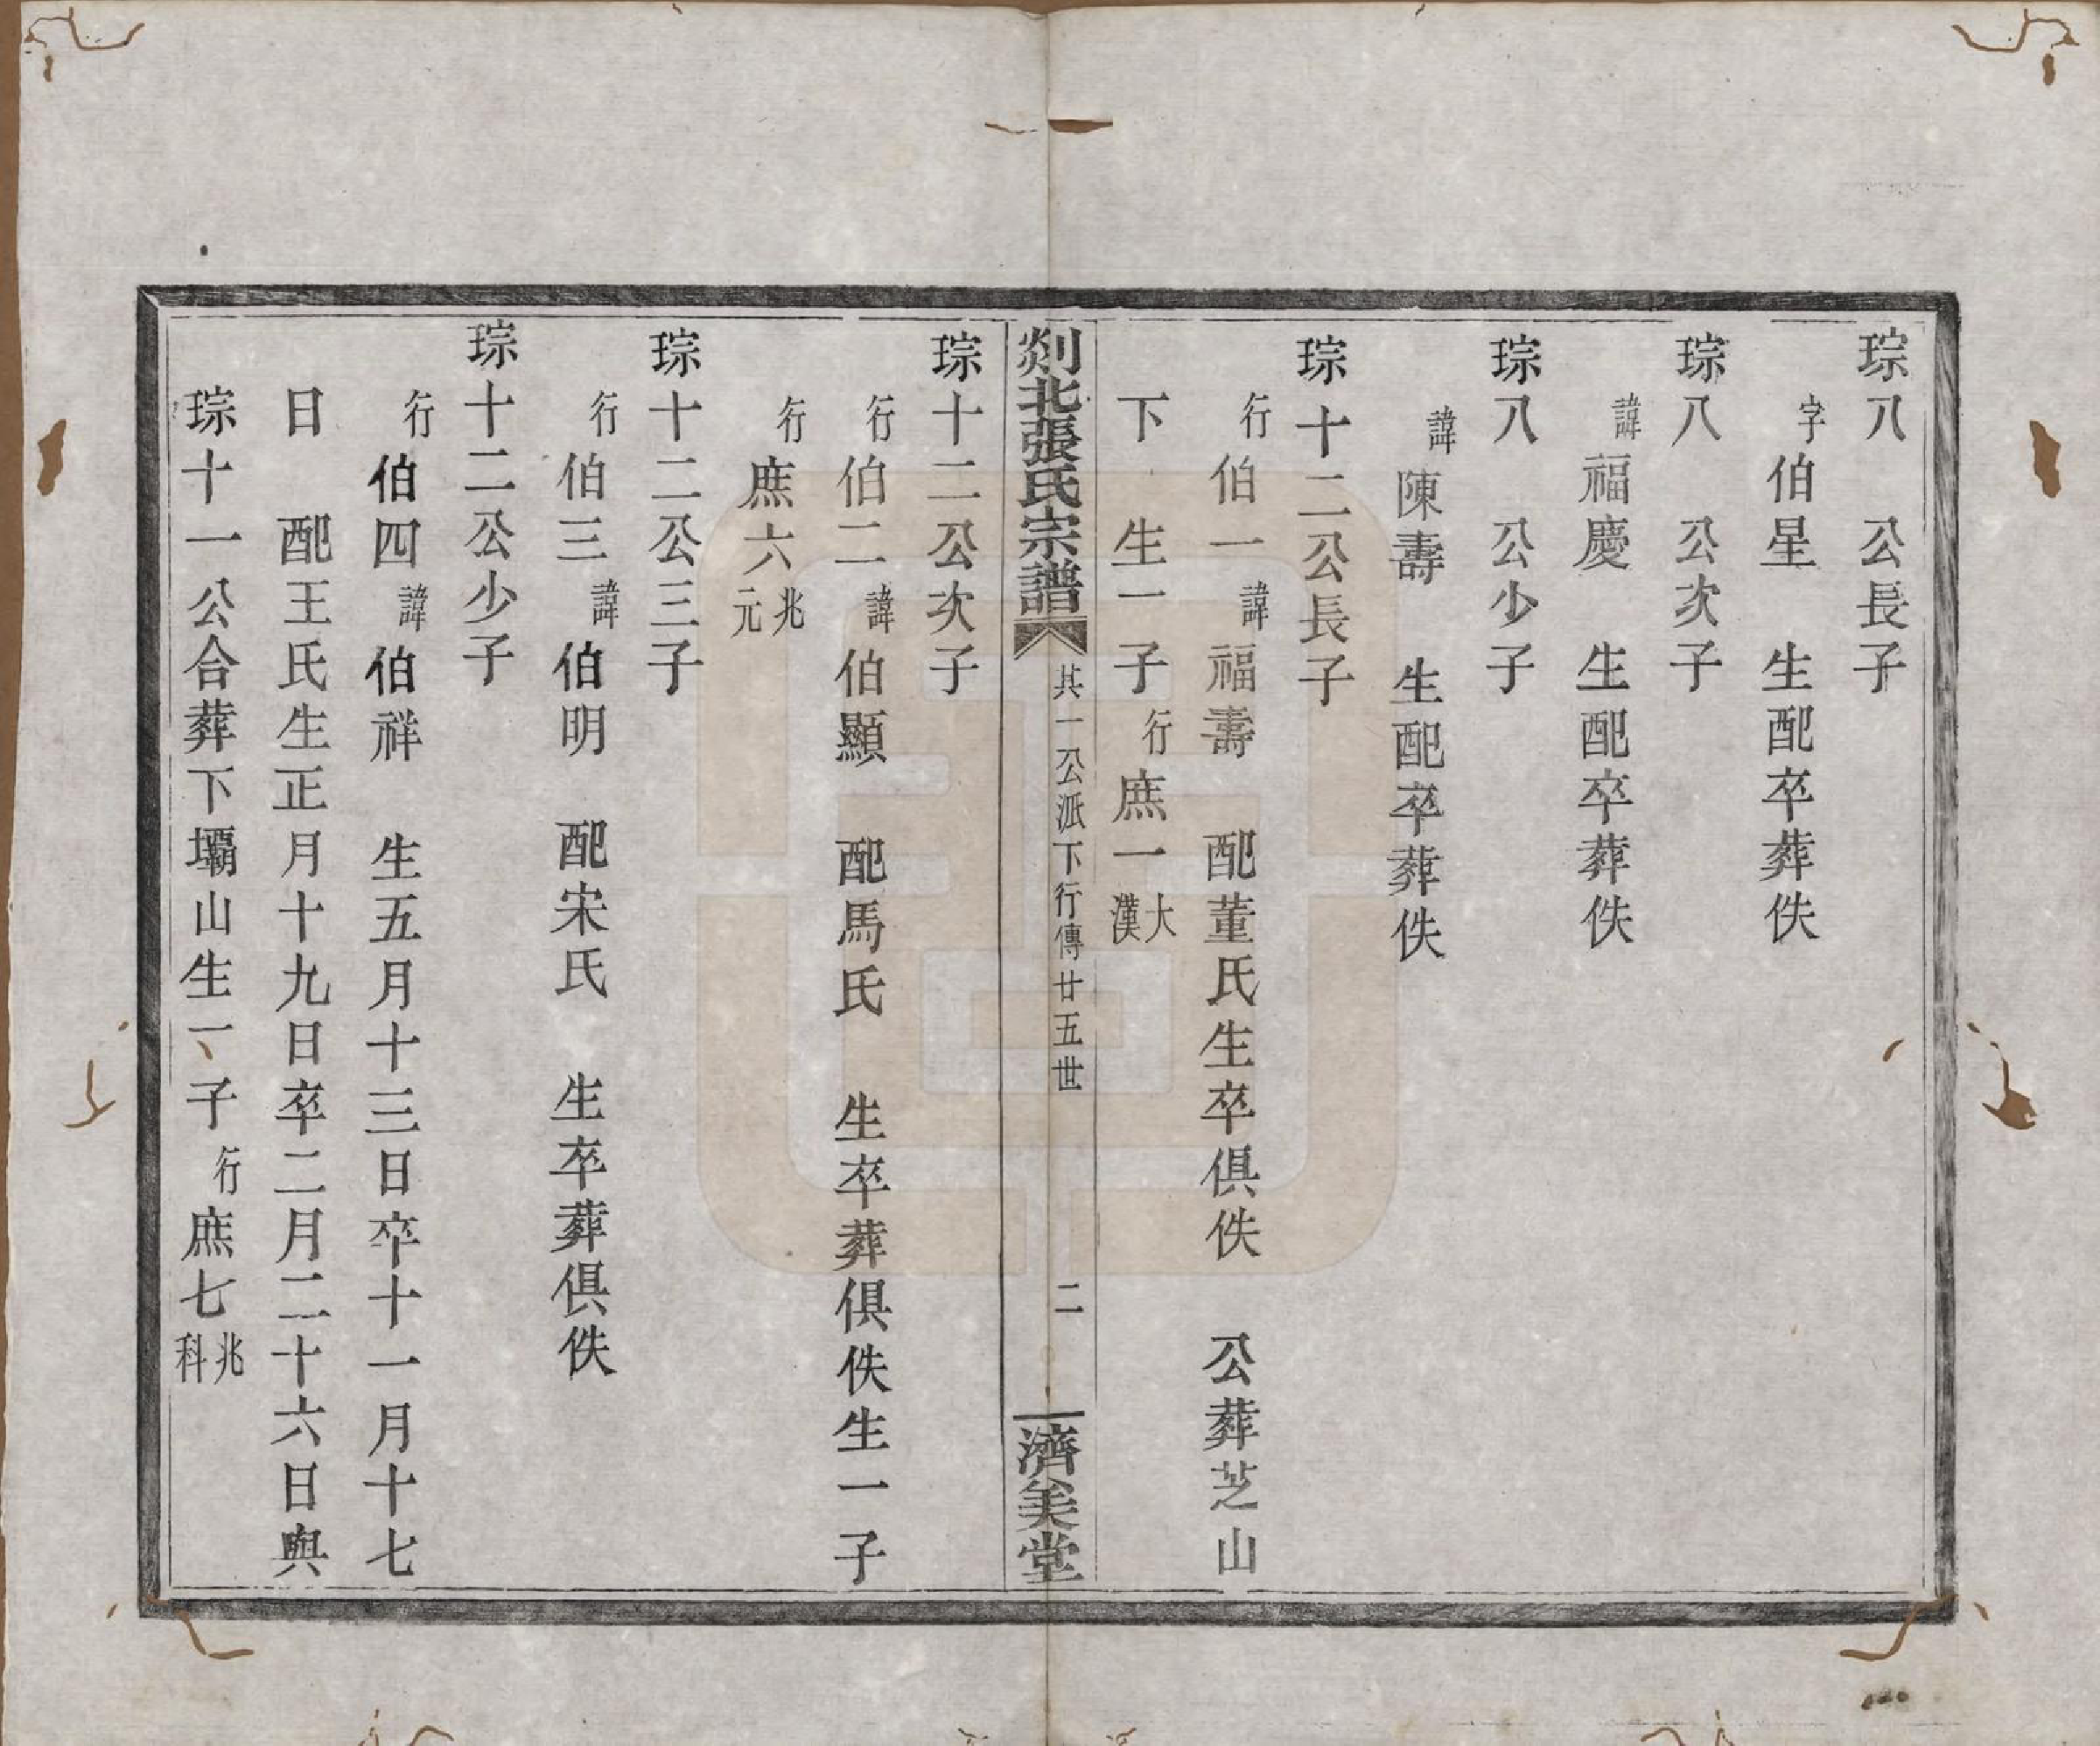 琮八　公長子
字伯星　生配卒葬佚
琮八　公次子
諱福慶　生配卒葬佚
琮八　公少子
諱陳壽　生配卒葬佚
琮十二公長子
行伯一諱福壽　配董氏生卒俱佚　公葬芝山
下　生一子行庶一大漢
剡北張氏宗譜　其一公派下行傳廿五世　二　濟美堂
琮十二公次子
行伯二諱伯顯　配馬氏　生卒葬俱佚生一子
行庶六兆元
琮十二公三子
行伯三諱伯明　配宋氏　生卒葬俱佚
琮十二公少子
行伯四諱伯祥　生五月十三日卒十一月十七
日　配王氏生正月十九日卒二月二十六日與
琮十一公合葬下壩山生一子行庶七兆科